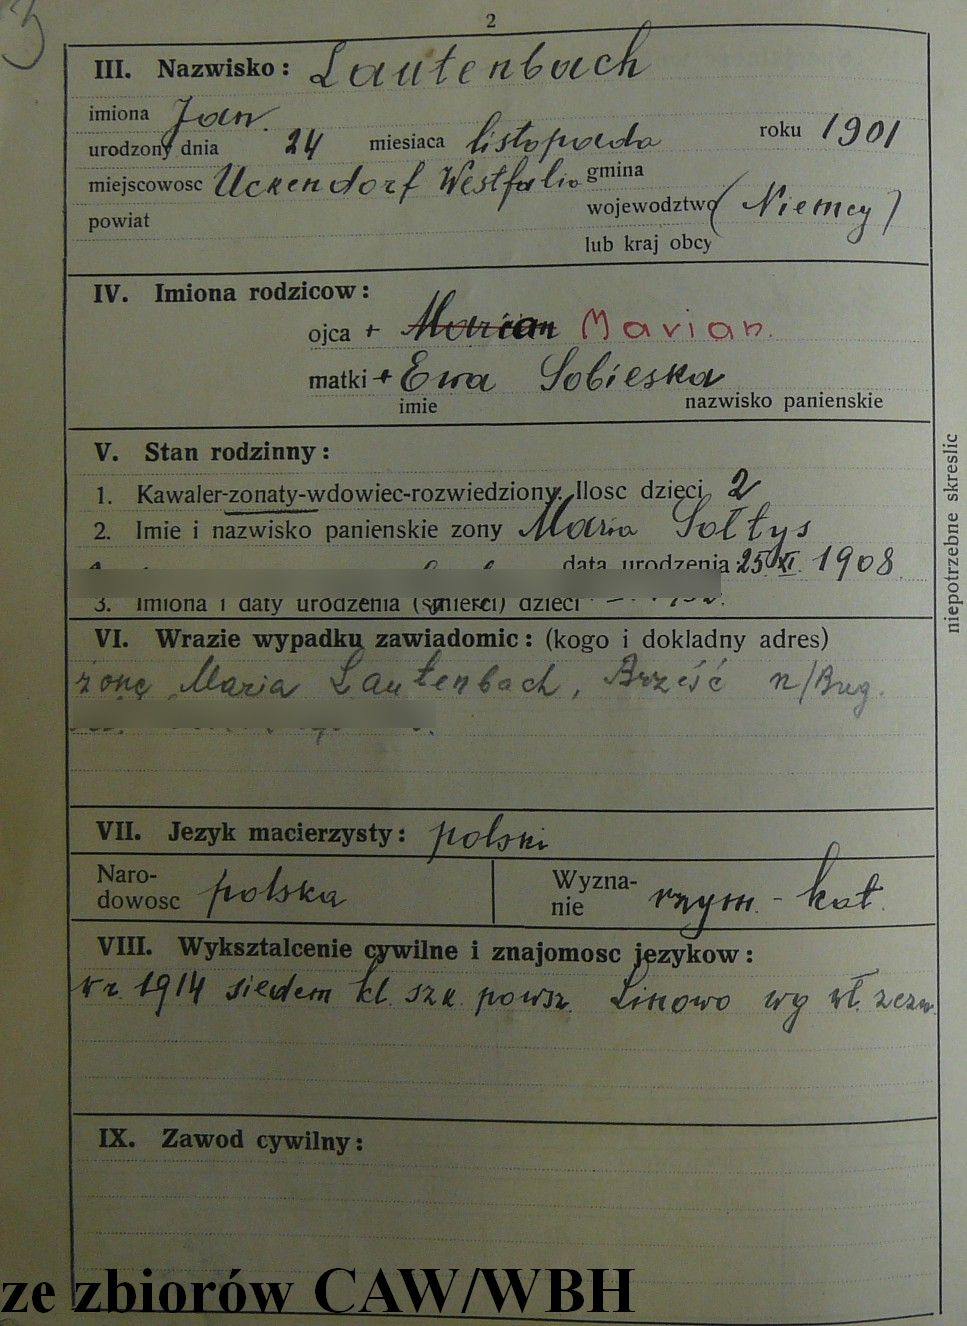 3
2
III. Nazwisko: Lautenbach
imiona Jan.
urodzony dnia 24 miesiaca listopada roku 1901
miejscowosc Uckendorf Westfalia gmina
powiat wojewodztwo (Niemcy)
lub kraj obcy
IV. Imiona rodzicow:
ojca + Marian Marian.
matki + Ewa Sobieska
imie nazwisko panienskie
V. Stan rodzinny:
1. Kawaler-zonaty-wdowiec-rozwiedziony. Ilosc dzieci 2
2. Imie i nazwisko panienskie zony Maria Sołtys
data urodzenia 25.XI. 1908.
3. Imiona i daty urodzenia (smierci) dzieci
VI. Wrazie wypadku zawiadomic: (kogo i dokladny adres)
żonę Maria Lautenbach, Brześć n/Bug.
VII. Jezyk macierzysty: polski
Naro-
dowosc polska
Wyzna-
nie rzym. - kat.
VIII. Wyksztalcenie cywilne i znajomosc jezykow:
W r. 1914 siedem kl. szk. powsz. Linowo wg wł. zezn.
IX. Zawod cywilny:
niepotrzebne skreslic
ze zbiorów CAW/WBH